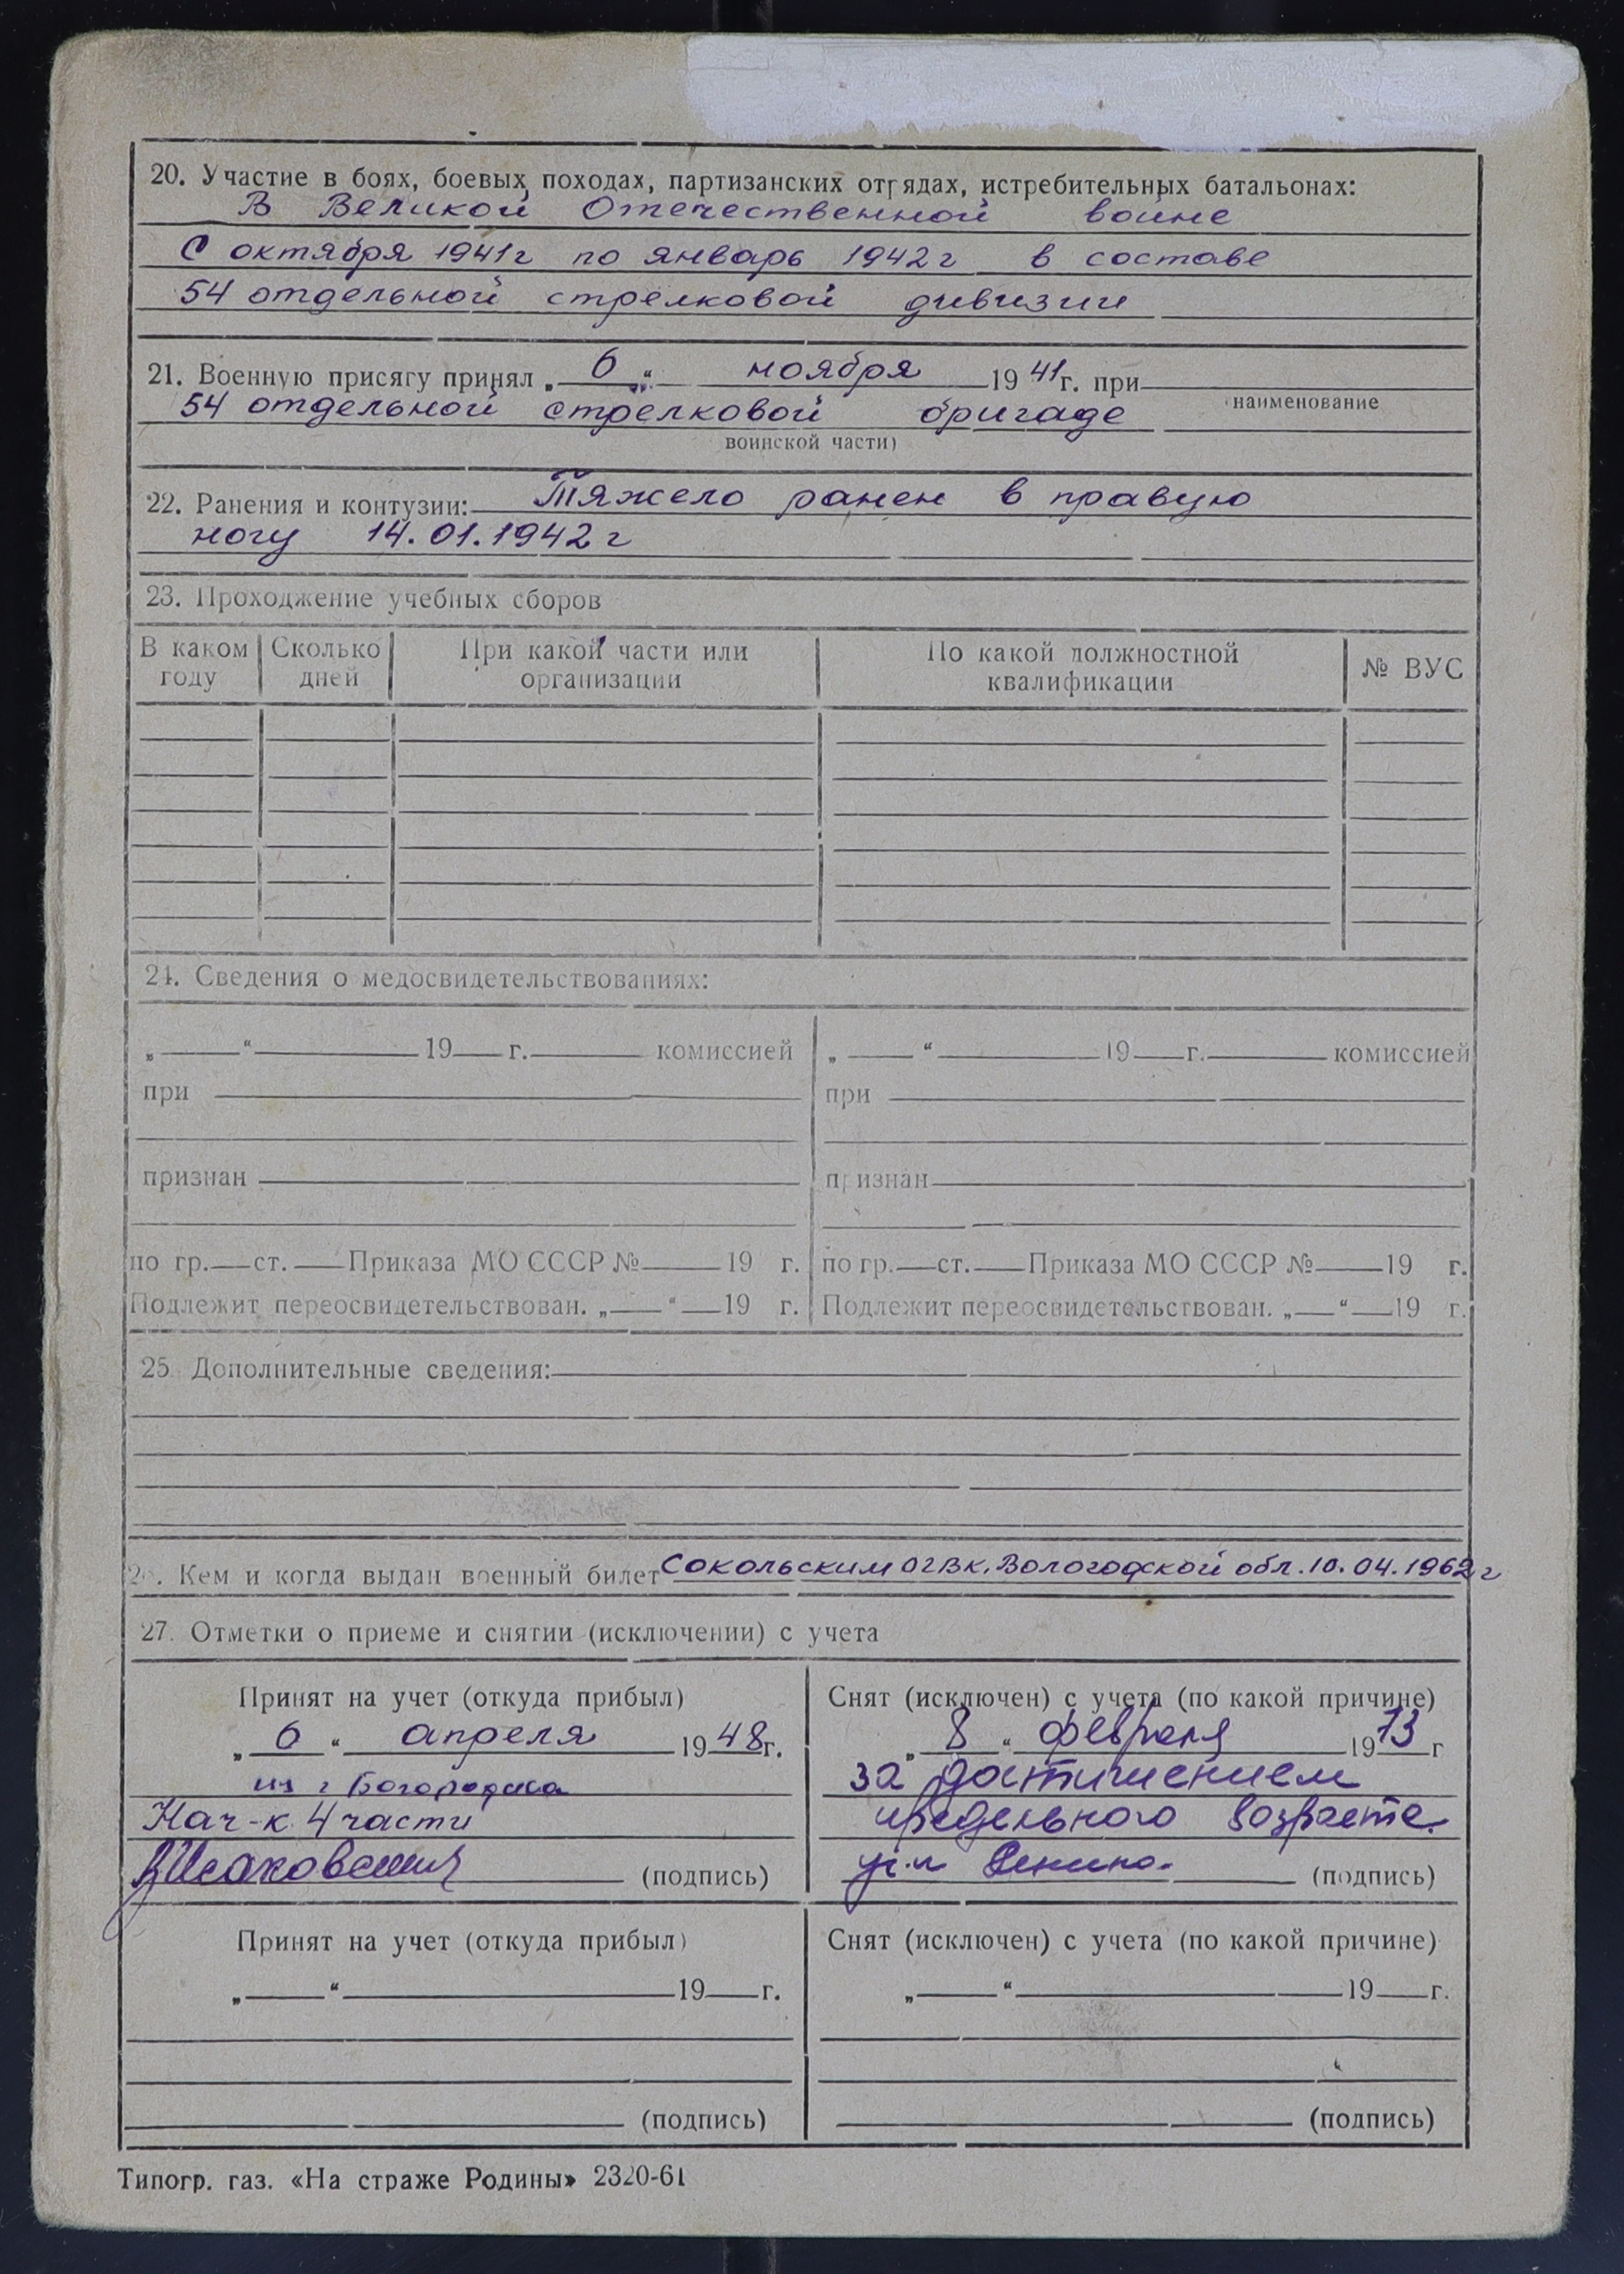 20. Участие в боях, боевых походах, партизанских отрядах, истребительных батальонах:
В Великой Отечественной войне
с октября 1941г по январь 1942г в составе
54 отдельной стрелковой дивизии
21. Военную присягу принял „ 6 “ ноября 1941г. при
54 отдельной стрелковой бригаде
наименование
воинской части)
22. Ранения и контузии: Тяжело ранен в правую
ногу 14.01.1942г
23. Прохождение учебных сборов
В каком году Сколько дней При какой части или организации По какой должностной квалификации № ВУС
24. Сведения о медосвидетельствованиях:
„ “ 19 г. комиссией „ “ 19 г. комиссией
при при
признан признан
по гр. ст. Приказа МО СССР № 19 г. по гр. ст. Приказа МО СССР № 19 г.
Подлежит переосвидетельствован. „ “ 19 г. Подлежит переосвидетельствован. „ “ 19 г.
25. Дополнительные сведения:
26. Кем и когда выдан военный билет Сокольским ОГВК, Вологодской обл. 10.04.1962г
27. Отметки о приеме и снятии (исключении) с учета
Принят на учет (откуда прибыл) Снят (исключен) с учета (по какой причине)
„ 6 “ апреля 1948г. „ 8 “ февраля 1973 г
из г Богородска за достижением
Нач-к 4 части предельного возраста.
(подпись) (подпись)
Принят на учет (откуда прибыл) Снят (исключен) с учета (по какой причине)
„ “ 19 г. „ “ 19 г.
(подпись) (подпись)
Типогр. газ. «На страже Родины» 2320-61